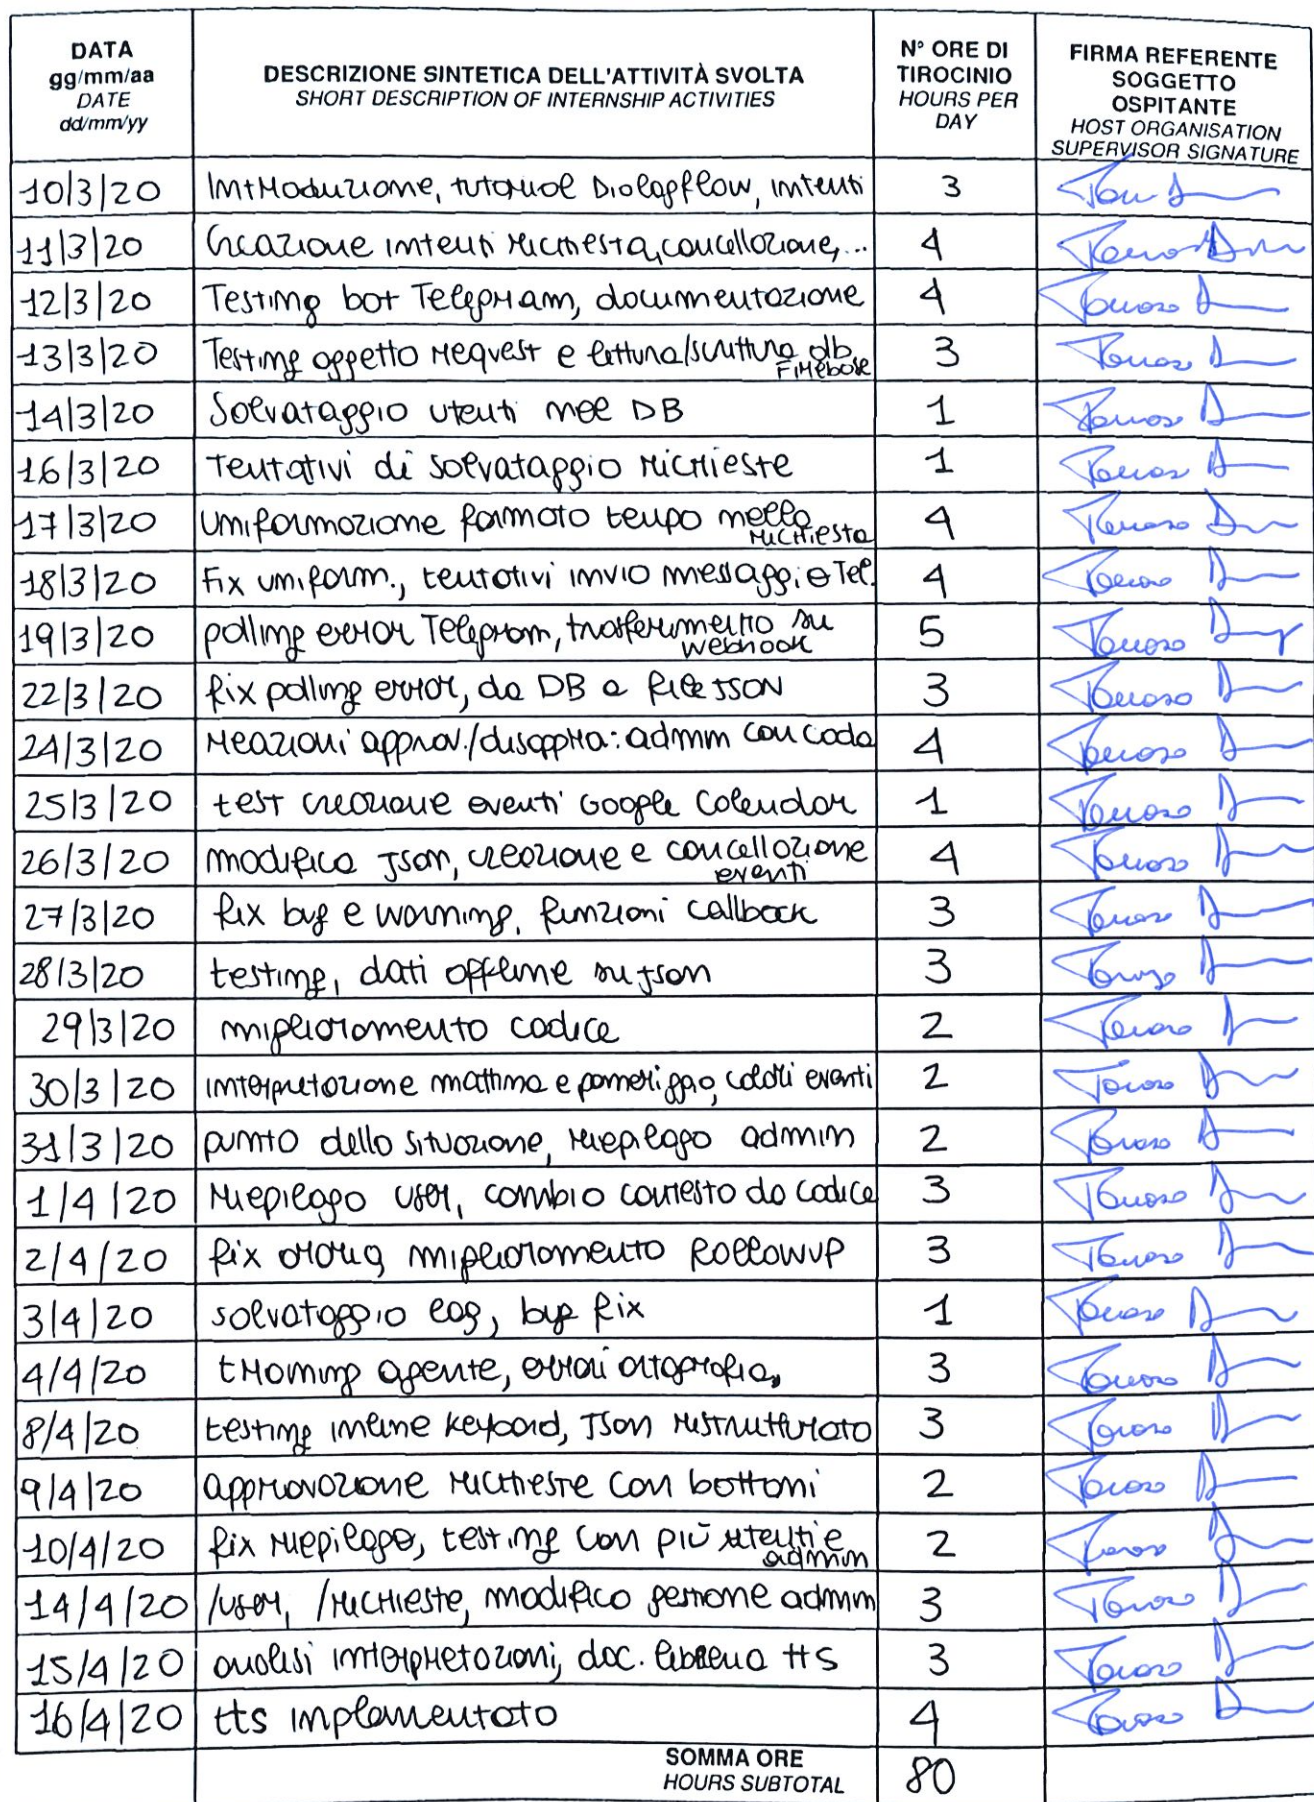 DATA
gg/mm/aa
DATE
dd/mm/yy
DESCRIZIONE SINTETICA DELL'ATTIVITÀ SVOLTA
SHORT DESCRIPTION OF INTERNSHIP ACTIVITIES
N° ORE DI
TIROCINIO
HOURS PER
DAY
FIRMA REFERENTE
SOGGETTO
OSPITANTE
HOST ORGANISATION
SUPERVISOR SIGNATURE
10/3/20 Introduzione, tutorial Dialogflow, intenti 3
11/3/20 Creazione intenti richiesta, cancellazione, ... 4
12/3/20 Testing bot Telegram, documentazione 4
13/3/20 Testing oggetto request e lettura/scrittura db 3
Firebase
14/3/20 Salvataggio utenti nel DB 1
16/3/20 Tentativi di salvataggio richieste 1
17/3/20 uniformazione formato tempo nella 4
richiesta
18/3/20 Fix uniform., tentativi invio messaggio Tel. 4
19/3/20 polling error Telegram, trasferimento su 5
webhook
22/3/20 fix polling error, da DB a file JSON 3
24/3/20 reazioni approv./disappra: admin con coda 4
25/3/20 test creazione eventi Google Calendar 1
26/3/20 modifica Json, creazione e cancellazione 4
eventi
27/3/20 fix bug e warning, funzioni callback 3
28/3/20 testing, dati offline su json 3
29/3/20 miglioramento codice 2
30/3/20 interpretazione mattina e pomeriggio, colori eventi 2
31/3/20 punto della situazione, riepilogo admin 2
1/4/20 riepilogo user, cambio contesto da codice 3
2/4/20 fix orario, miglioramento followup 3
3/4/20 salvataggio log, bug fix 1
4/4/20 training agente, errori ortografia, 3
8/4/20 testing inline keyboard, Json ristrutturato 3
9/4/20 approvazione richieste con bottoni 2
10/4/20 fix riepilogo, testing con più utenti e 2
admin
14/4/20 /user, /richieste, modifica gestione admin 3
15/4/20 analisi interpretazioni, doc. libreria tts 3
16/4/20 tts implementato 4
SOMMA ORE
HOURS SUBTOTAL 80